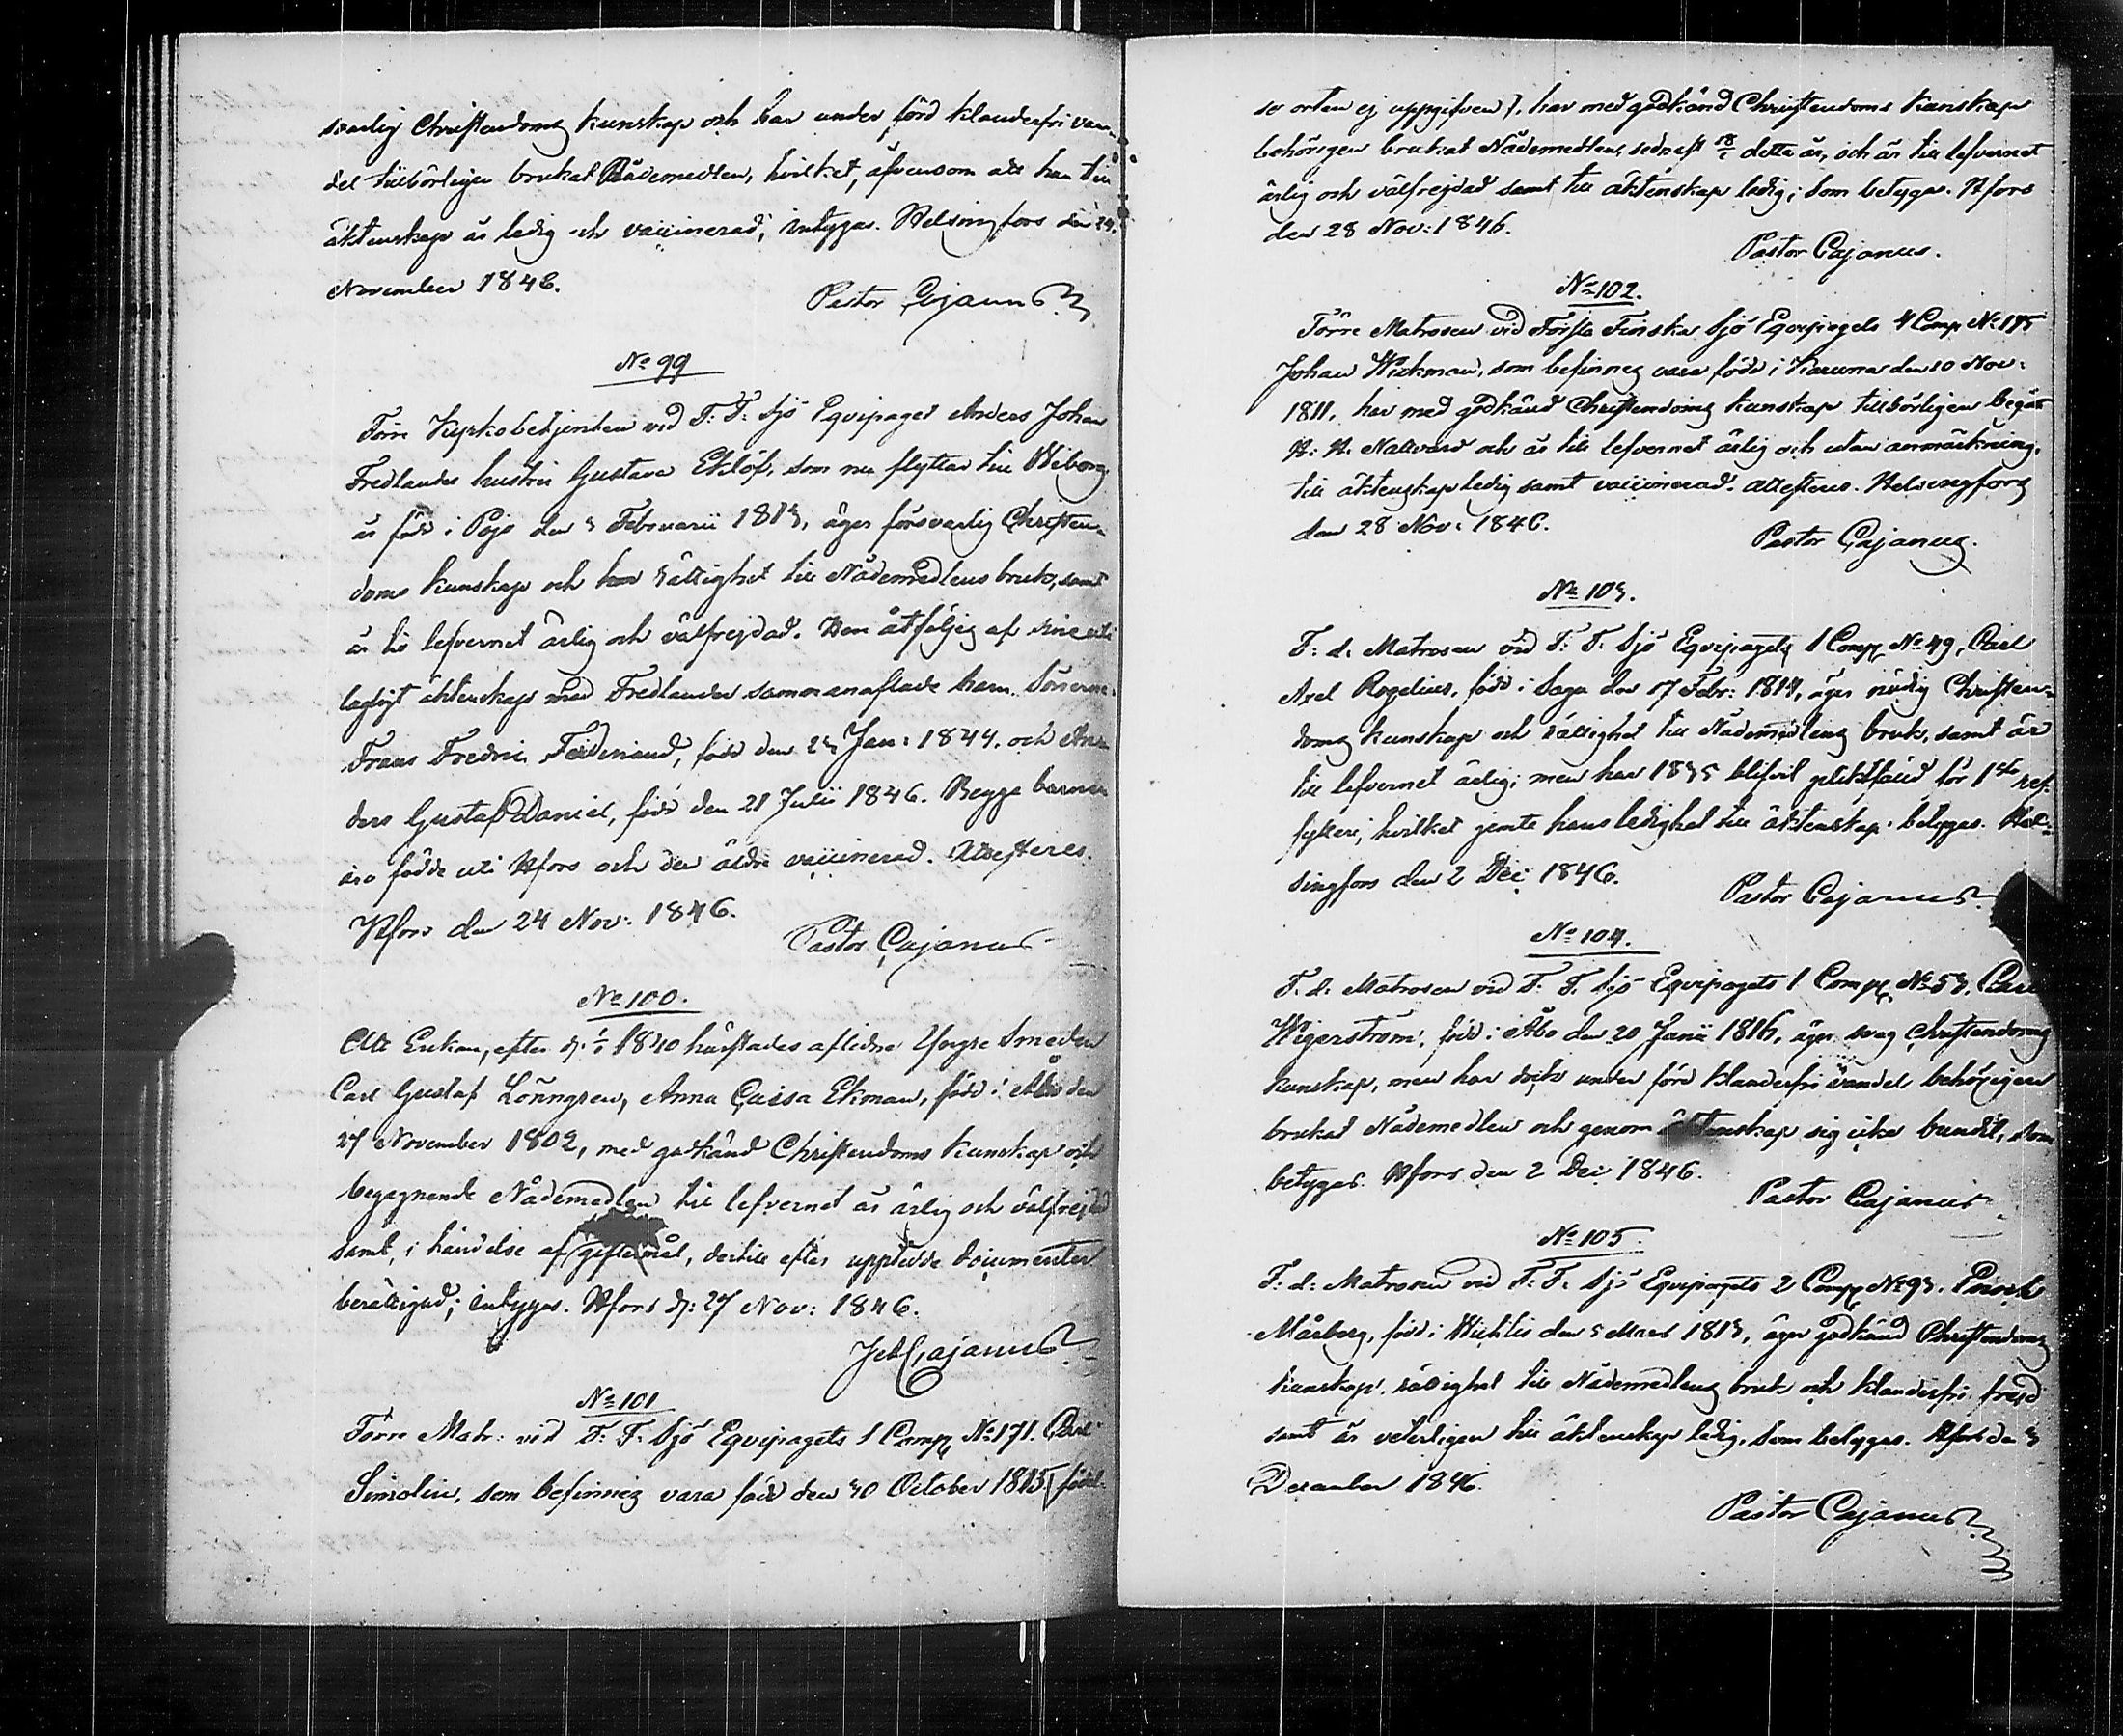 svarlig Christendoms kunskap och har under förd klanderfri van-
del tillbörligen brukat Nådemedlen, hvilket, äfvensom att han till
äktenskap är ledig och vaccinerad, intygas. Helsingfors den 24.
November 1846.
Pastor Cajanus
No 99
Förre Kyrkobetjenten vid F: F: Sjö Eqvipaget Anders Johan
Fredlanders hustru Gustava Eklöf, som nu flyttar till Wiborg,
är född i Pojo den 3 Februarii 1813, äger försvarlig Christen-
doms kunskap och har rättighet till Nådemedlens bruk, samt
är till lefvernet ärlig och välfrejdad. Hon åtföljes af sine uti
lagligt äktenskap med Fredlander sammanaflade barn Sönerne
Frans Fredric Ferdinand, född den 23 Jan: 1844. och An-
ders Gustaf Daniel, född den 21 Julii 1846. Begge barnen
äro födde uti Hfors och den äldre vaccinerad. Attesteres.
Hfors den 24 Nov: 1846.
Pastor Cajanus
No 100.
Att Enkan, efter d: 1840 härstädes aflidne Yngre Smeden
Carl Gustaf Lönngren, Anna Caisa Ekman, född i Åbo den
27 November 1802, med godkänd Christendoms kunskap och
begagnande Nådemedlen till lefvernet är ärlig och välfrejdad
samt, i händelse af giftermål, dertill efter uppteedde documenter
berättigad; intygas. Hfors d: 27 Nov: 1846.
Cajanus
No 101
Förre Matr: vid F: F: Sjö Eqvipagets 1 Comp No 171. Carl
Simolin, som befinnes vara född den 30 October 1815 (födel-
se orten ej uppgifven), har med godkänd Christendoms kunskap
behörigen brukat Nådemedlen, sednast detta år, och är till lefvernet
ärlig och välfrejdad samt till äktenskap ledig; som betygas. Hfors
den 28 Nov: 1846.
Pastor Cajanus.
No 102.
Förre Matrosen vid Första Finska Sjö Eqvipagets 4 Comp No 175
Johan Wickman, som befinnes vara född i Karuna den 10 Nov:
1811, har med godkänd Christendoms kunskap tillbörligen begått
H. H. Nattvard och är till lefvernet ärlig och utan anmärkning,
till äktenskap ledig samt vaccinerad. attesteras. Helsingfors
den 28 Nov: 1846.
Pastor Cajanus.
No 103.
F: d: Matrosen vid F: F. Sjö Eqvipagets 1 Comp No 49, Carl
Axel Rogelius, född i Sagu den 17 Febr: 1814, äger nödig Christen-
doms kunskap och rättighet till Nådemedlens bruk, samt är
till lefvernet ärlig; men har 1835 blifvit pliktfäld för 1sta
fylleri, hvilket jemte hans ledighet till äktenskap betygas. Hel-
singfors den 2 Dec 1846.
Pastor Cajanus
No 104.
F. d: Matrosen vid F. F. Sjö Eqvipagets 1 Comp No 53. Carl
Wigerström, född i Åbo den 20 Junii 1816, äger svag Christendoms
kunskap, men har dock under förd klanderfri vandel behörigen
brukat Nådemedlen och genom äktenskap sig icke bundit, som
betygas. Hfors den 2 Dec 1846.
Pastor Cajanus
No 105.
F: d: Matrosen vid F: F. Sjö Eqvipagets 2 Comp No 93. Enoch
Mårberg, född i Wichtis den 3 Mars 1813, äger godkänd Christendoms
kunskap, rättighet till Nådemedlens bruk och klanderfri frejd
samt är veterligen till äktenskap ledig, som betygas. Hfors den 3
December 1846.
Pastor Cajanus